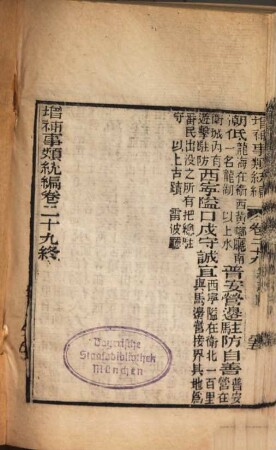 增補事類統編 卷二十九
龍海在衛西黄螂廳南
一名龍湖 以上水 普安營邊駐防自善 普安營在
衛城内有遊擊駐防 西寧隘口戍守誠宜 西寧隘在衛北一百里與馬邊營接界其地為
番民出没之所有把總駐守 以上古蹟 雷波廳
增補事類統編卷二十九終
Bayerische
Staatsbibliothek
München